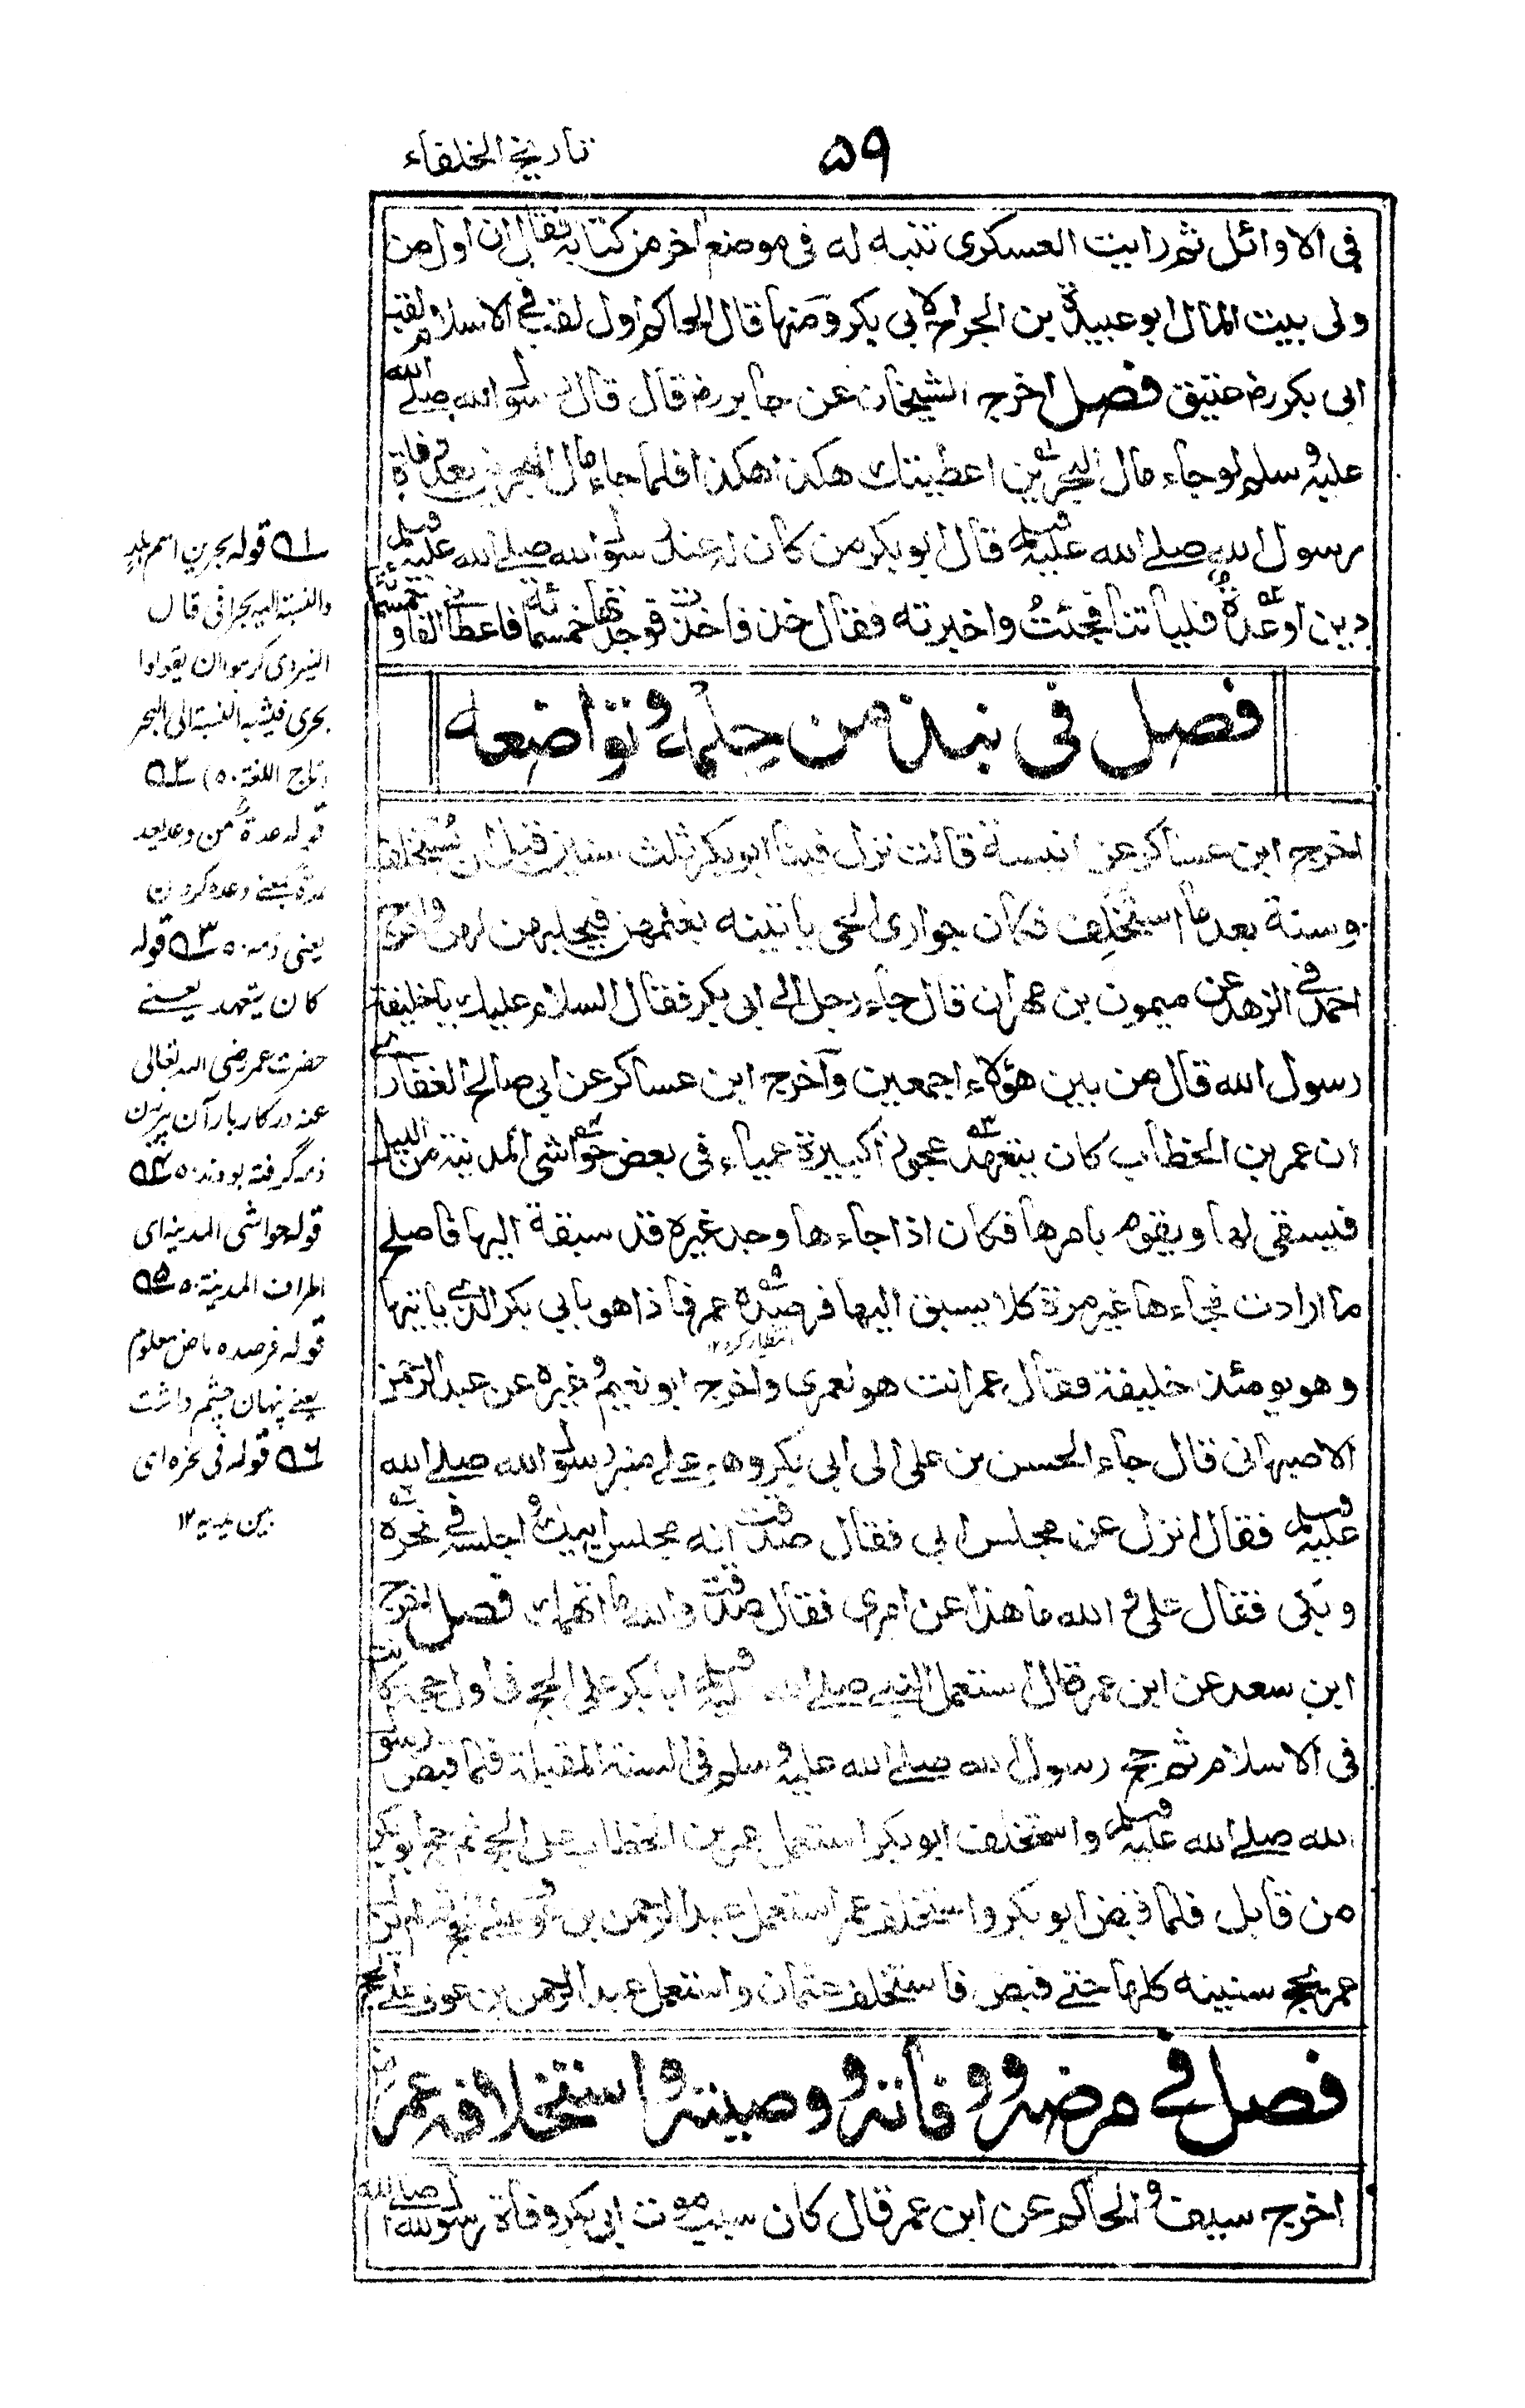 تاريخ الخلفاء
۵۹
فى الاوائل ثم رايت العسكرى تنبه له فى موضع اخر من كتابه فقال ان اول من
ولى بيت المال ابو عبيدة بن الجراح لابى بكر ومنها قال الحاكم اول لقب فى الاسلام لقب
ابى بكر رض عتيق فصل اخرج الشيخان عن جابر رض قال قال رسول الله صلے الله
عليه وسلم لو جاء مال البحرين اعطيتك هكذا هكذا فلما جاء مال البحرين بعد وفاة
رسول الله صلے الله عليه وسلم قال ابو بكر من كان له عند رسول الله صلے الله عليه وسلم
دين او عدة فلياتنا فجئت واخبرته فقال خذ فاخذت فوجدتها خمسمائة فاعطانى الفا وخمسمائة
فصل فى نبذ من حلمه وتواضعه
اخرج ابن عساكر عن انيسة قالت نزل فينا ابو بكر ثلث سنين قبل ان يستخلف
وسنة بعد ما استخلف فكان جوارى الحى ياتينه بغنمهن فيحلبهن لهن واخرج
احمد فى الزهد عن ميمون بن مهران قال جاء رجل الى ابى بكر فقال السلام عليك يا خليفة
رسول الله قال من بين هؤلاء اجمعين وآخرج ابن عساكر عن ابى صالح الغفارى
ان عمر بن الخطاب كان يتعهد عجوزا كبيرة عمياء فى بعض حواشى المدينة من الليل
فيسقى لها ويقوم بامرها فكان اذا جاءها وجد غيره قد سبقه اليها فاصلح
ما ارادت فجاءها غير مرة كلا يسبق اليها فرصده عمر فاذا هو بابى بكر الذى ياتيها
انتظار كرد ۱۲
وهو يومئذ خليفة فقال عمر انت هو لعمرى واخرج ابو نعيم وغيره عن عبد الرحمن
الاصبهانى قال جاء الحسن بن على الى ابى بكر وهو على منبر رسول الله صلے الله
عليه وسلم فقال انزل عن مجلس ابى فقال صدقت انه مجلس ابيك واجلسه فى حجره
وبكى فقال على والله ما هذا عن امرى فقال صدقت والله ما اتهمك فصل اخرج
ابن سعد عن ابن عمر قال استعمل النبى صلے الله عليه وسلم ابا بكر على الحج فى اول حجة كانت
فى الاسلام ثم حج رسول الله صلے الله عليه وسلم فى السنة المقبلة فلما قبض رسول
الله صلے الله عليه وسلم واستخلف ابو بكر استعمل عمر بن الخطاب على الحج ثم حج ابو بكر
من قابل فلما قبض ابو بكر واستخلف عمر استعمل عبد الرحمن بن عوف على الحج ثم لم يزل
عمر يحج سنينه كلها حتے قبض فاستخلف عثمان واستعمل عبد الرحمن بن عوف على الحج
فصل فى مرضه ووفاته ووصيته واستخلافه عمر
اخرج سيف والحاكم عن ابن عمر قال كان سبب موت ابى بكر وفاة رسول الله صلے الله
۱ قوله بحرين اسم بلد
والنسبة اليه بحرانى قال
اليزيدى كرهوا ان يقولوا
بحرى فيشبه النسبة الى البحر
(تاج اللغة) ۲
قوله عدة من وعد يعد
عدة بمعنے وعده كردن
يعنى ذمه ۳ قوله
كان يتعهد يعنے
حضرت عمر رضى الله تعالى
عنه در كار بار آن پيرزن
ذمه گرفته بودند ۴
قوله حواشى المدينة اى
اطراف المدينة ۵
قوله فرصده ماضى معلوم
يعنے پنهان چشم داشت
۶ قوله فى حجره اى
بين يديه ۱۲